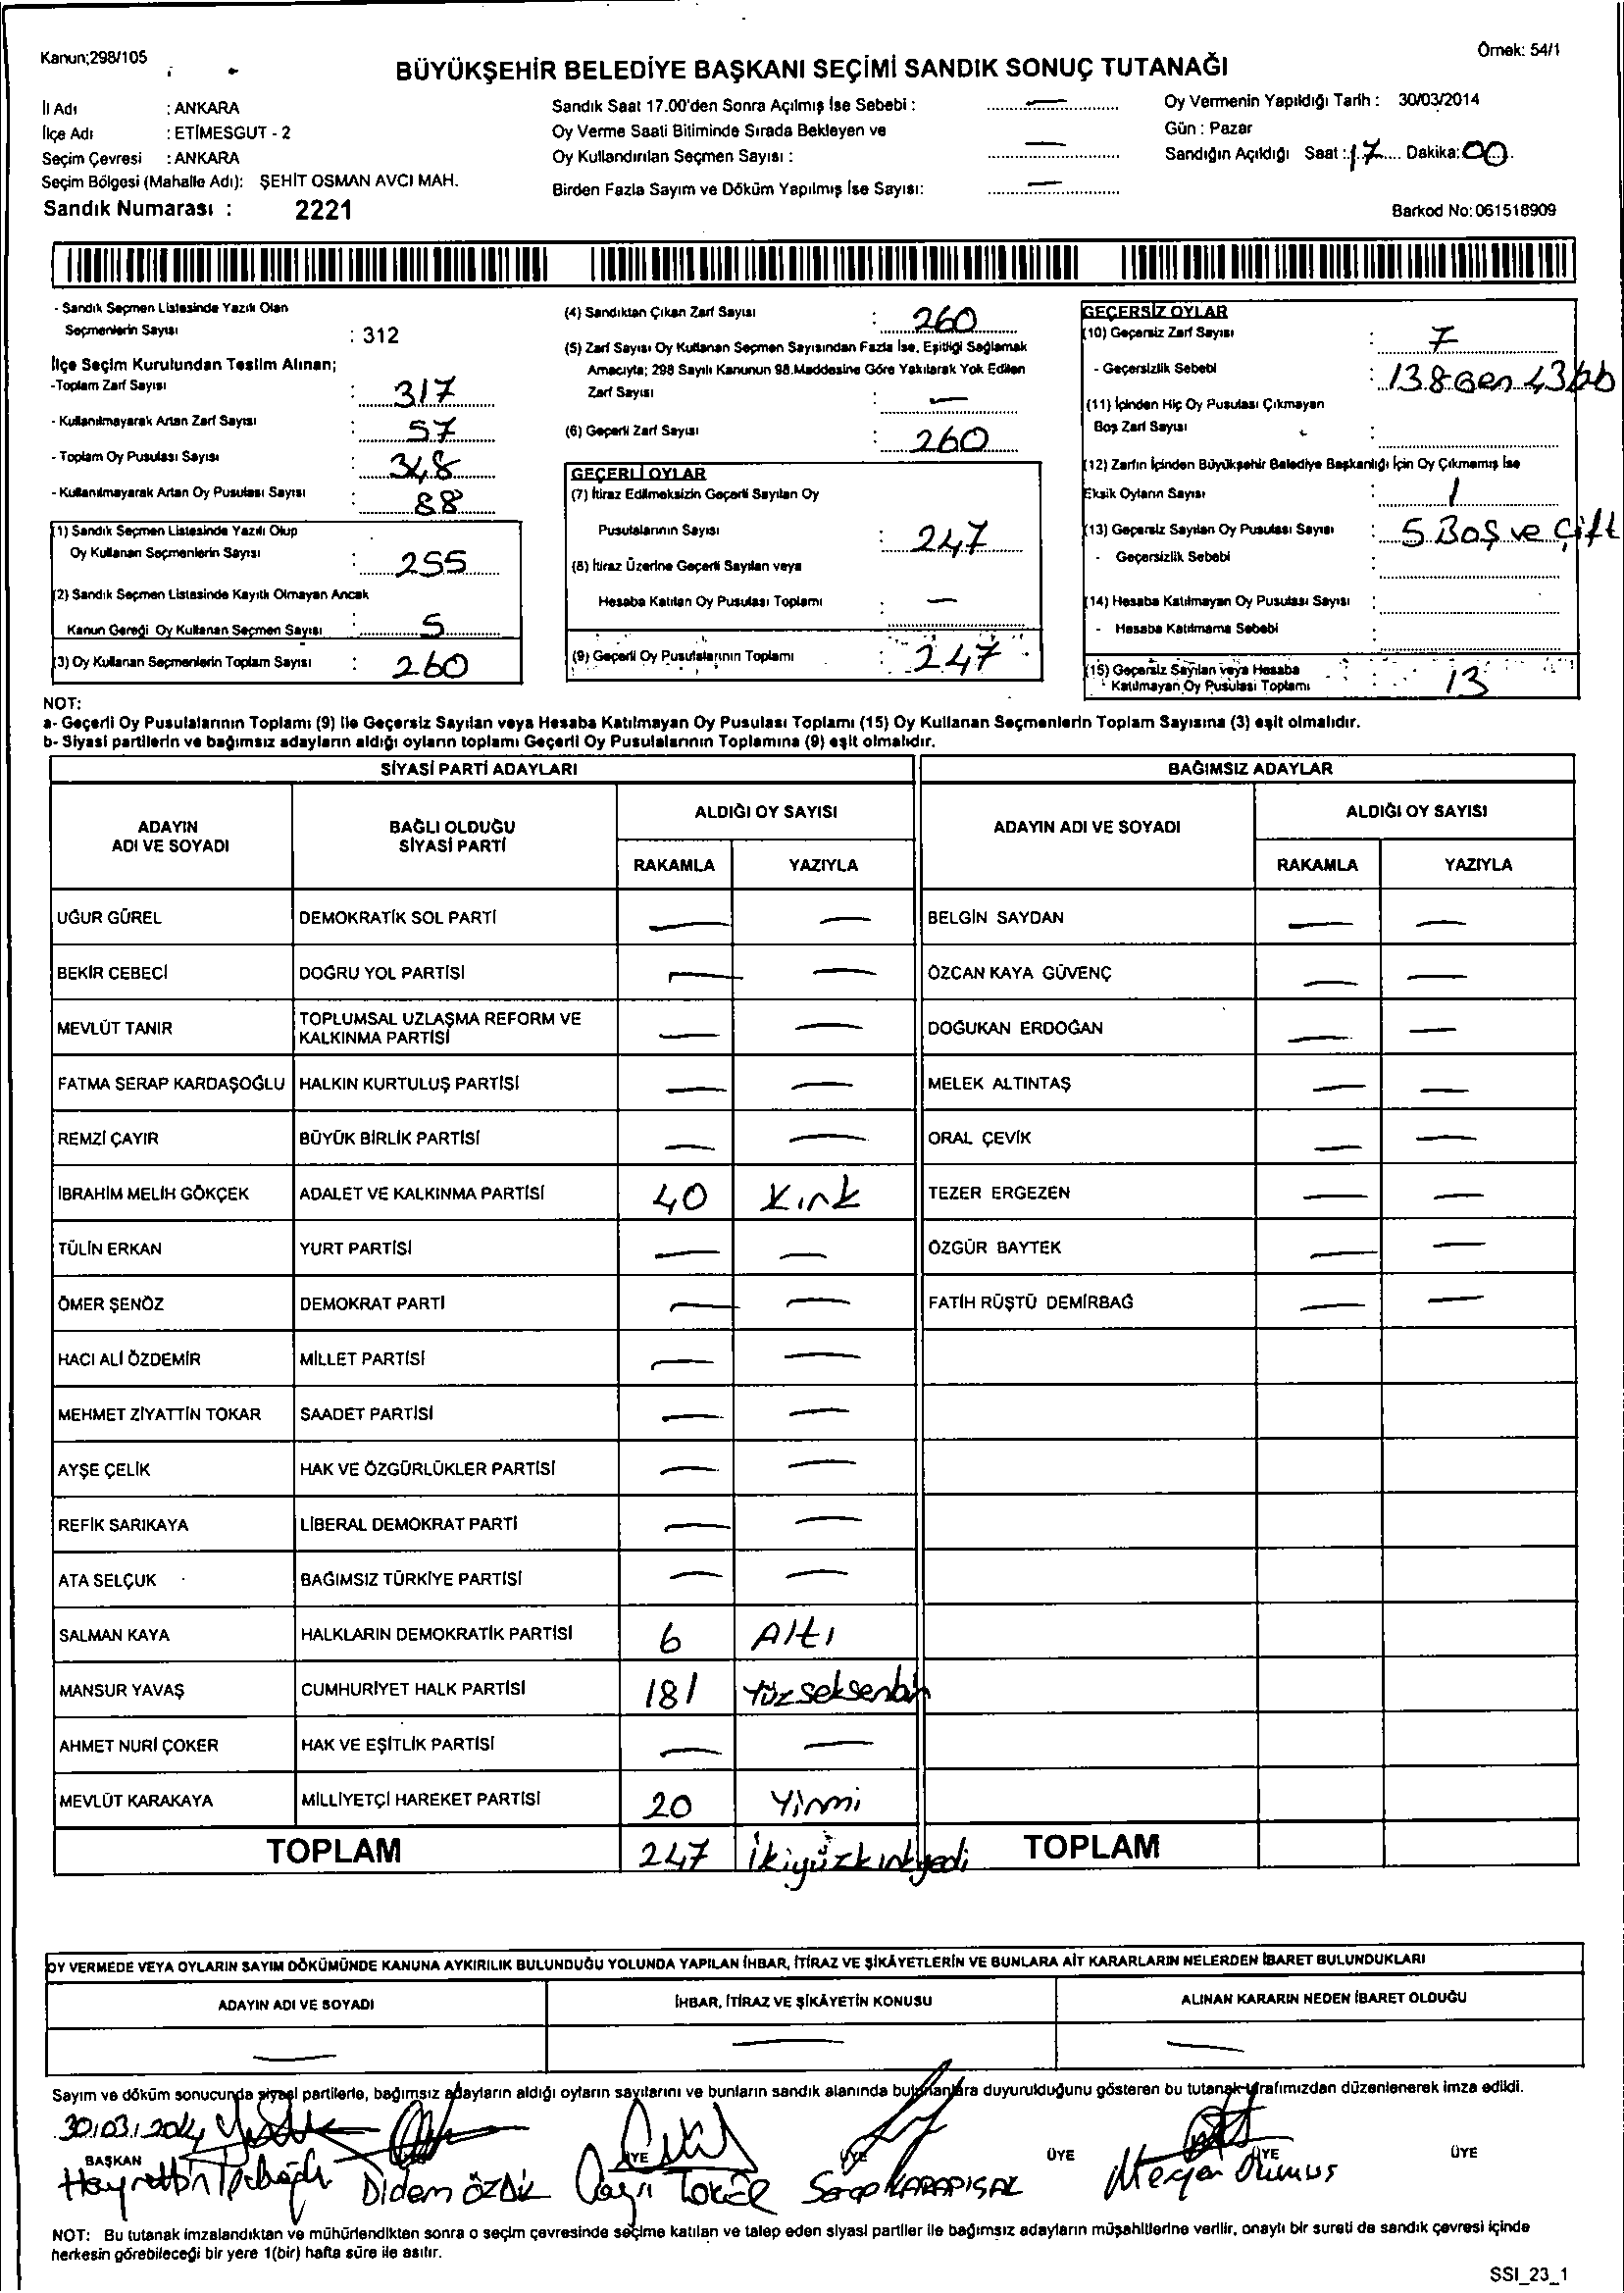 Kanun;298/105
Örnek: 54/1
BÜYÜKŞEHİR BELEDİYE BAŞKANI SEÇİMİ SANDIK SONUÇ TUTANAĞI
İl Adı : ANKARA
İlçe Adı : ETİMESGUT - 2
Seçim Çevresi : ANKARA
Seçim Bölgesi (Mahalle Adı): ŞEHİT OSMAN AVCI MAH.
Sandık Numarası : 2221
Sandık Saat 17.00'den Sonra Açılmış İse Sebebi :
Oy Verme Saati Bitiminde Sırada Bekleyen ve
Oy Kullandırılan Seçmen Sayısı :
Birden Fazla Sayım ve Döküm Yapılmış İse Sayısı:
Oy Vermenin Yapıldığı Tarih : 30/03/2014
Gün : Pazar
Sandığın Açıldığı Saat : 17 Dakika: 00
Barkod No: 061518909
- Sandık Seçmen Listesinde Yazılı Olan
Seçmenlerin Sayısı : 312
İlçe Seçim Kurulundan Teslim Alınan;
-Toplam Zarf Sayısı : 317
- Kullanılmayarak Artan Zarf Sayısı : 57
- Toplam Oy Pusulası Sayısı : 348
- Kullanılmayarak Artan Oy Pusulası Sayısı : 88
(1) Sandık Seçmen Listesinde Yazılı Olup
Oy Kullanan Seçmenlerin Sayısı : 255
(2) Sandık Seçmen Listesinde Kayıtlı Olmayan Ancak
Kanun Gereği Oy Kullanan Seçmen Sayısı : 5
(3) Oy Kullanan Seçmenlerin Toplam Sayısı : 260
(4) Sandıktan Çıkan Zarf Sayısı : 260
(5) Zarf Sayısı Oy Kullanan Seçmen Sayısından Fazla İse, Eşitliği Sağlamak
Amacıyla; 298 Sayılı Kanunun 98.Maddesine Göre Yakılarak Yok Edilen
Zarf Sayısı : —
(6) Geçerli Zarf Sayısı : 260
GEÇERLİ OYLAR
(7) İtiraz Edilmeksizin Geçerli Sayılan Oy
Pusulalarının Sayısı : 247
(8) İtiraz Üzerine Geçerli Sayılan veya
Hesaba Katılan Oy Pusulası Toplamı : —
(9) Geçerli Oy Pusulalarının Toplamı : 247
GEÇERSİZ OYLAR
(10) Geçersiz Zarf Sayısı : 7
- Geçersizlik Sebebi :
(11) İçinden Hiç Oy Pusulası Çıkmayan
Boş Zarf Sayısı :
(12) Zarfın İçinden Büyükşehir Belediye Başkanlığı İçin Oy Çıkmamış İse
Eksik Oyların Sayısı : 1
(13) Geçersiz Sayılan Oy Pusulası Sayısı : 5 Boş ve Çift
- Geçersizlik Sebebi :
(14) Hesaba Katılmayan Oy Pusulası Sayısı :
- Hesaba Katılmama Sebebi :
(15) Geçersiz Sayılan veya Hesaba
Katılmayan Oy Pusulası Toplamı : 13
NOT:
a- Geçerli Oy Pusulalarının Toplamı (9) ile Geçersiz Sayılan veya Hesaba Katılmayan Oy Pusulası Toplamı (15) Oy Kullanan Seçmenlerin Toplam Sayısına (3) eşit olmalıdır.
b- Siyasi partilerin ve bağımsız adayların aldığı oyların toplamı Geçerli Oy Pusulalarının Toplamına (9) eşit olmalıdır.
SİYASİ PARTİ ADAYLARI BAĞIMSIZ ADAYLAR
ADAYIN ADI VE SOYADI BAĞLI OLDUĞU SİYASİ PARTİ ALDIĞI OY SAYISI ADAYIN ADI VE SOYADI ALDIĞI OY SAYISI
RAKAMLA YAZIYLA RAKAMLA YAZIYLA
UĞUR GÜREL DEMOKRATİK SOL PARTİ — — BELGİN SAYDAN — —
BEKİR CEBECİ DOĞRU YOL PARTİSİ — — ÖZCAN KAYA GÜVENÇ — —
MEVLÜT TANIR TOPLUMSAL UZLAŞMA REFORM VE KALKINMA PARTİSİ — — DOĞUKAN ERDOĞAN — —
FATMA SERAP KARDAŞOĞLU HALKIN KURTULUŞ PARTİSİ — — MELEK ALTINTAŞ — —
REMZİ ÇAYIR BÜYÜK BİRLİK PARTİSİ — — ORAL ÇEVİK — —
İBRAHİM MELİH GÖKÇEK ADALET VE KALKINMA PARTİSİ 40 Kırk TEZER ERGEZEN — —
TÜLİN ERKAN YURT PARTİSİ — — ÖZGÜR BAYTEK — —
ÖMER ŞENÖZ DEMOKRAT PARTİ — — FATİH RÜŞTÜ DEMİRBAĞ — —
HACI ALİ ÖZDEMİR MİLLET PARTİSİ — —
MEHMET ZİYATTİN TOKAR SAADET PARTİSİ — —
AYŞE ÇELİK HAK VE ÖZGÜRLÜKLER PARTİSİ — —
REFİK SARIKAYA LİBERAL DEMOKRAT PARTİ — —
ATA SELÇUK BAĞIMSIZ TÜRKİYE PARTİSİ — —
SALMAN KAYA HALKLARIN DEMOKRATİK PARTİSİ 6 Altı
MANSUR YAVAŞ CUMHURİYET HALK PARTİSİ 181 Yüzseksenbir
AHMET NURİ ÇOKER HAK VE EŞİTLİK PARTİSİ — —
MEVLÜT KARAKAYA MİLLİYETÇİ HAREKET PARTİSİ 20 Yirmi
TOPLAM 247 İkiyüzkırkyedi TOPLAM
OY VERMEDE VEYA OYLARIN SAYIM DÖKÜMÜNDE KANUNA AYKIRILIK BULUNDUĞU YOLUNDA YAPILAN İHBAR, İTİRAZ VE ŞİKÂYETLERİN VE BUNLARA AİT KARARLARIN NELERDEN İBARET BULUNDUKLARI
ADAYIN ADI VE SOYADI İHBAR, İTİRAZ VE ŞİKÂYETİN KONUSU ALINAN KARARIN NEDEN İBARET OLDUĞU
— — —
Sayım ve döküm sonucunda siyasi partilerle, bağımsız adayların aldığı oyların sayılarını ve bunların sandık alanında bulunanlara duyurulduğunu gösteren bu tutanak tarafımızdan düzenlenerek imza edildi.
30/03/2014
BAŞKAN ÜYE ÜYE ÜYE ÜYE ÜYE
Hayrettin Didem ÖZDİL Çağrı Serap KARAPIÇAK Meryem Durmuş
NOT: Bu tutanak imzalandıktan ve mühürlendikten sonra o seçim çevresinde seçime katılan ve talep eden siyasi partiler ile bağımsız adayların müşahitlerine verilir, onaylı bir sureti de sandık çevresi içinde
herkesin görebileceği bir yere 1(bir) hafta süre ile asılır.
SSI_23_1